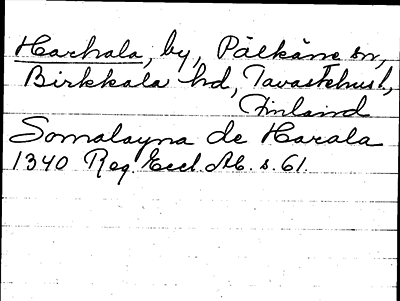 Harhala, by, Pälkäne sn,
Birkkala hd, Tavastehus l.,
Finland
Somalayna de Harala
1340 Reg. Eccl. Ab. s. 61.